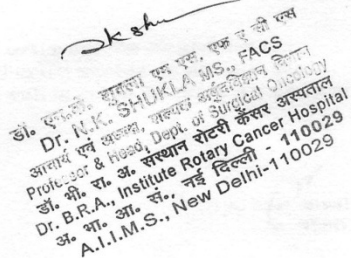 डॉ. एन.के. शुक्ला एम एस, एफ ए सी एस
Dr. N.K. SHUKLA MS., FACS
आचार्य एवं अध्यक्ष, शल्यक अर्बुदविज्ञान विभाग
Professor & Head, Dept. of Surgical Oncology
डॉ. भी. रा. अ. संस्थान रोटरी कैंसर अस्पताल
Dr. B.R.A., Institute Rotary Cancer Hospital
अ. भा. आ. सं., नई दिल्ली - 110029
A.I.I.M.S., New Delhi-110029